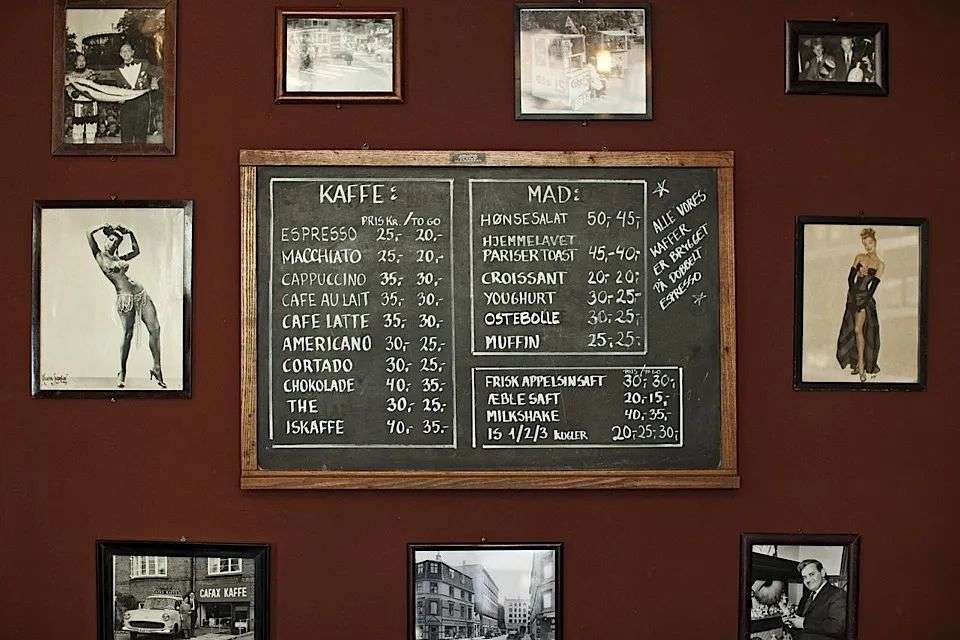 KAFFE:
PRIS KR. / TO GO
ESPRESSO 25,- 20,-
MACCHIATO 25,- 20,-
CAPPUCCINO 35,- 30,-
CAFE AU LAIT 35,- 30,-
CAFE LATTE 35,- 30,-
AMERICANO 30,- 25,-
CORTADO 30,- 25,-
CHOKOLADE 40,- 35,-
THE 30,- 25,-
ISKAFFE 40,- 35.-
MAD:
HØNSESALAT 50,- 45,-
HJEMMELAVET
PARISERTOAST 45,- 40,-
CROISSANT 20,- 20,-
YOUGHURT 30,- 25,-
OSTEBOLLE 30,- 25,-
MUFFIN 25,- 25,-
ALLE VORES
KAFFER
ER BRYGGET
PÅ DOBBELT
ESPRESSO
PRIS / TO GO
FRISK APPELSINSAFT 30,- 30,-
ÆBLESAFT 20,- 15,-
MILKSHAKE 40,- 35,-
IS 1/2/3 KUGLER 20,- 25,- 30,-
CAFAX KAFFE